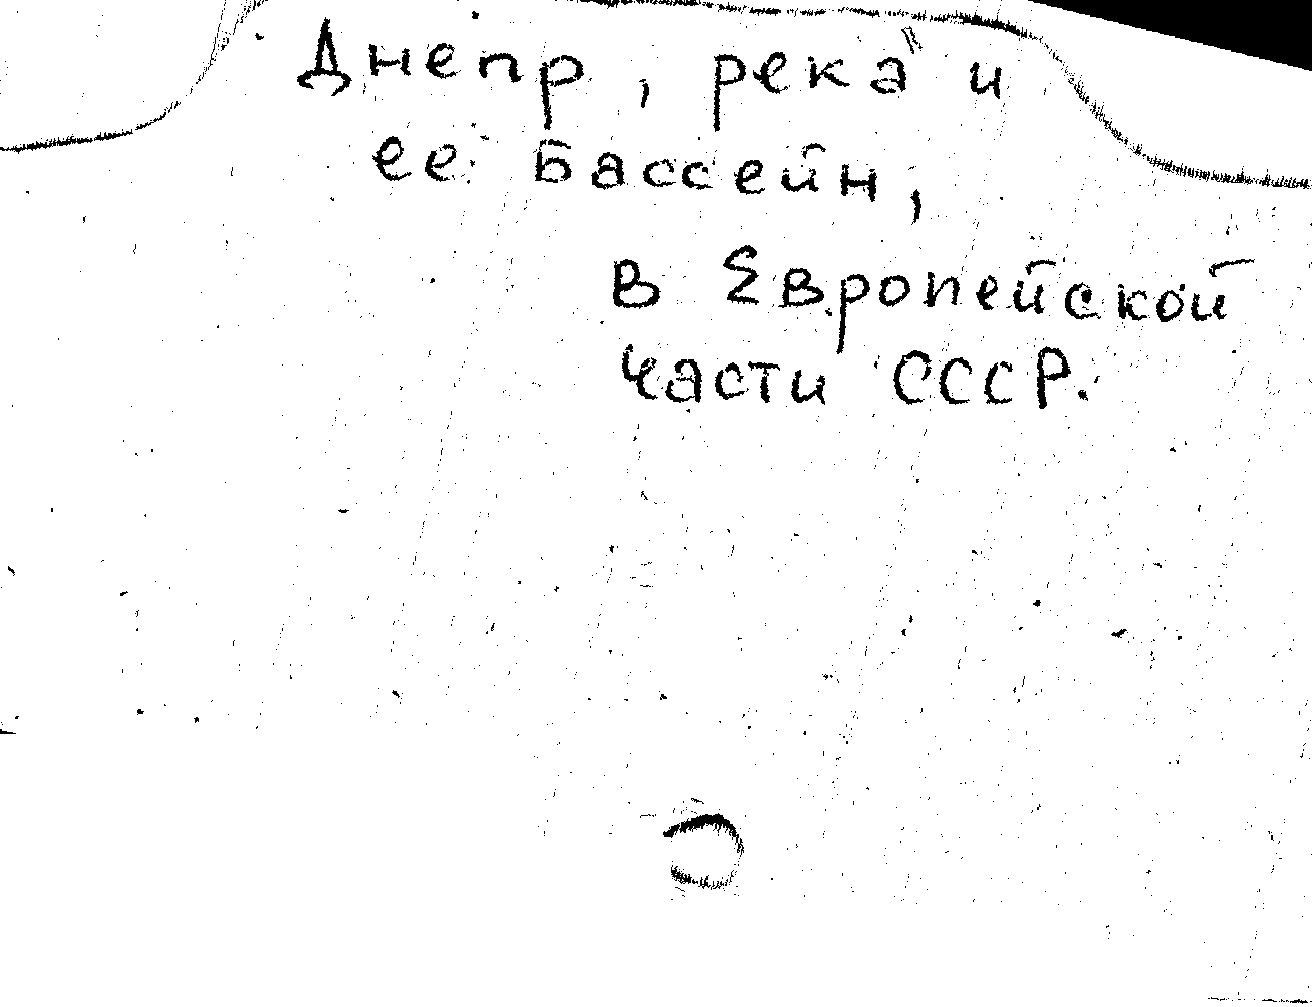 Днепр, река и
ее бассейн,
в Европейской
части СССР.